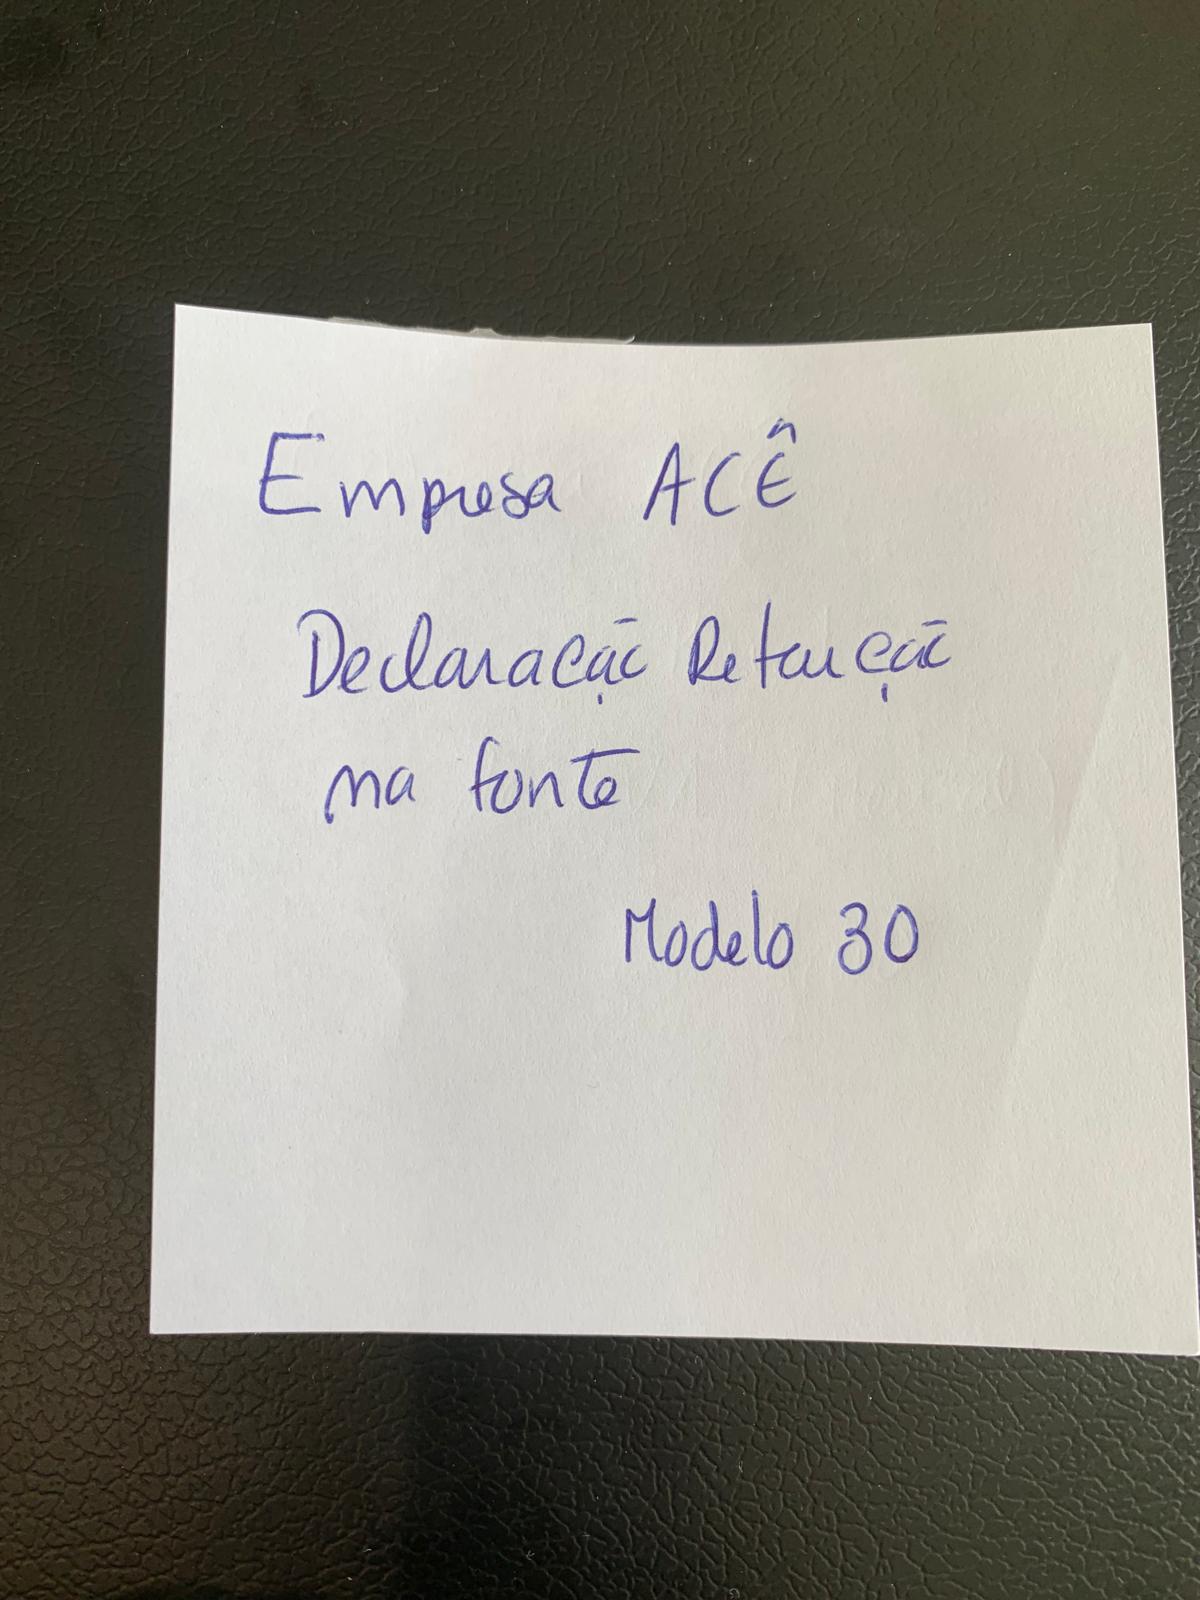 Empresa ACÊ
Declaração Retenção
na fonte
Modelo 30